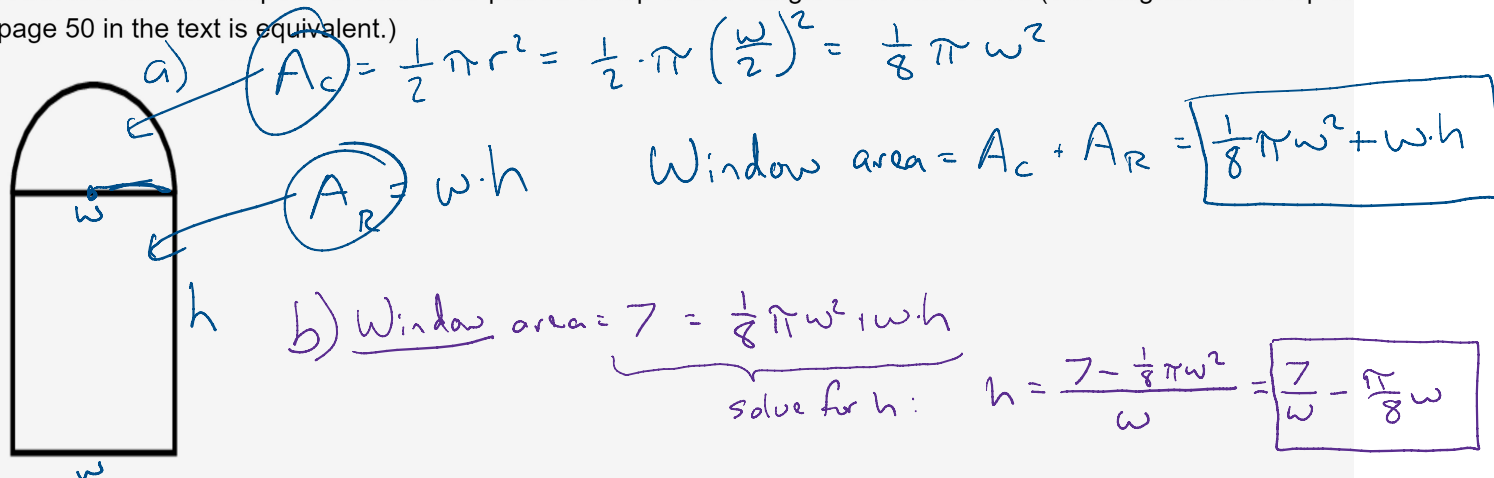 page 50 in the text is equivalent.)
a) A_C = 1/2 π r² = 1/2 · π (w/2)² = 1/8 π w²
A_R = w·h
Window area = A_C + A_R = 1/8 π w² + w·h
w
h
b) Window area = 7 = 1/8 π w² + w·h
solve for h:
h = (7 - 1/8 π w²)/w = 7/w - π/8 w
w